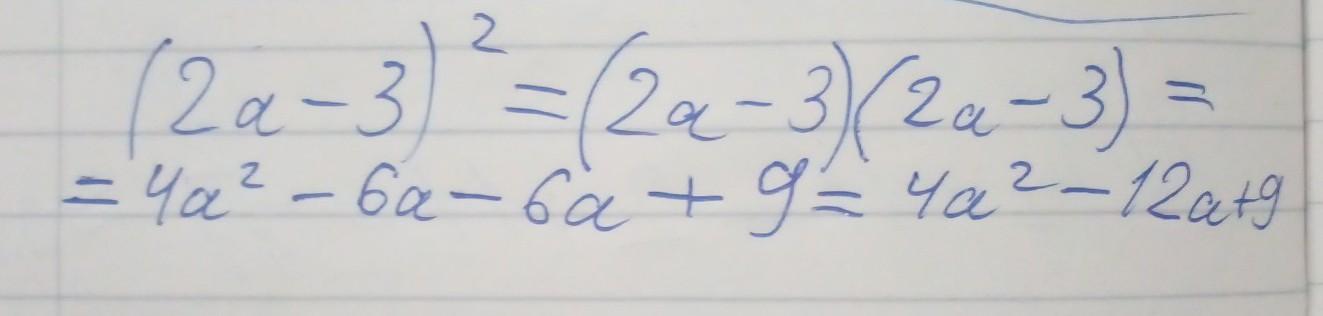 (2a-3)² = (2a-3)(2a-3) =
= 4a² - 6a - 6a + 9 = 4a² - 12a+9